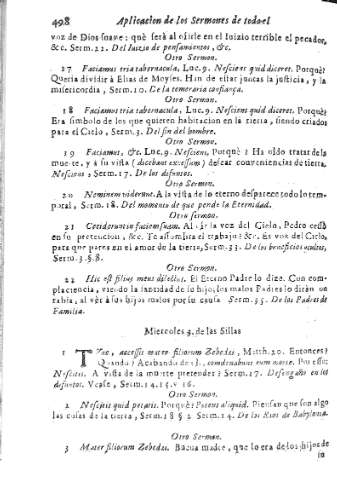 498 Aplicacion de los Sermones de todo el
voz de Dios suave: què serà al oìrle en el Iuizio terrible el pecador,
&c. Serm.22. Del Iuizio de pensamientos, &c.
Otro Sermon.
17 Faciamus tria tabernacula, Luc.9. Nesciens quid diceret. Porquè?
Queria dividir à Elias de Moyses. Han de estar juntas la justicia, y la
misericordia, Serm.10. De la temeraria confiança.
Otro Sermon.
18 Faciamus tria tabernacula, Luc.9. Nesciens quid diceret. Porquè?
Era simbolo de los que quieren habitacion en la tierra, siendo criados
para el Cielo, Serm.3. Del fin del hombre.
Otro Sermon.
19 Faciamus, &c. Luc.9. Nesciens, Porquè? Ha oìdo tratar de la
muerte, y à su vista (dicebant excessum) desear conveniencias de tierra,
Nesciens; Serm.17. De los difuntos.
Otro Sermon.
20 Neminem viderunt. A la vista de lo eterno desparece todo lo tem-
poral, Serm.18. Del momento de que pende la Eternidad.
Otro sermon.
21 Ceciderunt in faciem suam. Al oìr la voz del Cielo, Pedro cessò
en su pretension, &c. Te assombra el trabajo? &c. Es voz del Cielo,
para que pares en el amor de la tierra, Serm.33. De los beneficios ocultos,
Serm.3.§.8.
Otro Sermon.
22 Hic est filius meus dilectus. El Eterno Padre lo dize. Con com-
placencia, viendo la santidad de su hijo; los malos Padres lo diràn con
rabia, al vèr à sus hijos malos por su causa. Serm.35. De los Padres de
Familia.
Miercoles 3. de las Sillas
1 Tunc, accessit mater filiorum Zebedæi, Matth.20. Entonces?
Quando? Acabando de condemnabunt eum morte. Por esso:
Nescitis. A vista de la muerte pretender? Serm.17. Desengaños en los
difuntos. Vease, Serm.14.15.y 16.
Otro Sermon.
2 Nescitis quid petatis. Porquè? Petens aliquid. Piensan que son algo
las cosas de la tierra, Serm.1 §.§ 2. Serm.14. De los Rios de Babylonia.
Otro Sermon.
3 Mater filiorum Zebedæi. Buena madre, que lo era de los hijos de
su